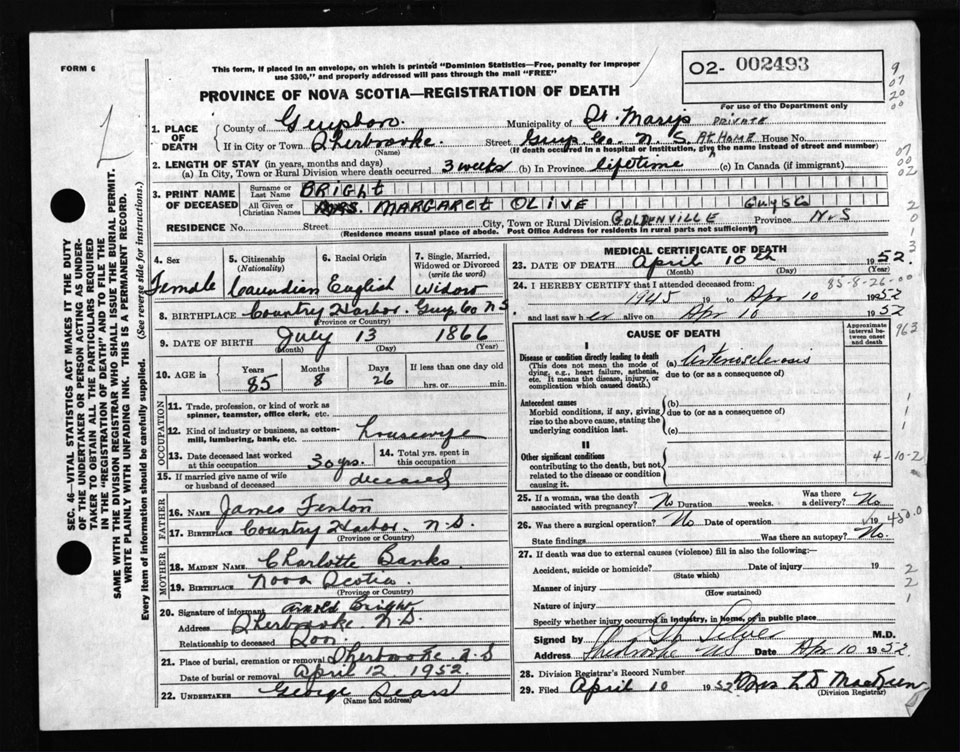 FORM 6
This form, if placed in an envelope, on which is printed "Dominion Statistics—Free, penalty for improper
use $300," and properly addressed will pass through the mail "FREE"
O2- 002493
PROVINCE OF NOVA SCOTIA—REGISTRATION OF DEATH
For use of the Department only
1. PLACE OF DEATH
County of Guysboro. Municipality of St. Marys PRIVATE
If in City or Town Sherbrooke. Street Guys. Co. N. S. AT HOME House No.
(Name) (If death occurred in a hospital or institution, give the name instead of street and number)
2. LENGTH OF STAY (in years, months and days)
(a) In City, Town or Rural Division where death occurred 3 weeks (b) In Province lifetime (c) In Canada (if immigrant)
3. PRINT NAME OF DECEASED
Surname or Last Name BRIGHT
All Given or Christian Names MRS. MARGARET OLIVE
RESIDENCE No. Street City, Town or Rural Division GOLDENVILLE GUYS Co Province N.S
(Residence means usual place of abode. Post Office Address for residents in rural parts not sufficient)
4. Sex Female
5. Citizenship (Nationality) Canadian
6. Racial Origin English
7. Single, Married, Widowed or Divorced (write the word) Widow
8. BIRTHPLACE Country Harbor. Guys. Co N S.
(Province or Country)
9. DATE OF BIRTH July 13 1866
(Month) (Day) (Year)
10. AGE in Years 85 Months 8 Days 26 If less than one day old hrs. or min.
OCCUPATION
11. Trade, profession, or kind of work as spinner, teamster, office clerk, etc.
12. Kind of industry or business, as cotton-mill, lumbering, bank, etc. housewife
13. Date deceased last worked at this occupation 30 yrs. 14. Total yrs. spent in this occupation
15. If married give name of wife or husband of deceased deceased
FATHER
16. NAME James Fenton
17. BIRTHPLACE Country Harbor. N.S.
(Province or Country)
MOTHER
18. MAIDEN NAME Charlotte Banks
19. BIRTHPLACE Nova Scotia.
(Province or Country)
20. Signature of informant Arnold Bright
Address Sherbrooke N.S.
Relationship to deceased Son.
21. Place of burial, cremation or removal Sherbrooke N.S
Date of burial or removal April 12. 1952
22. UNDERTAKER George Sears
(Name and address)
MEDICAL CERTIFICATE OF DEATH
23. DATE OF DEATH April 10th 1952.
(Month) (Day) (Year)
24. I HEREBY CERTIFY that I attended deceased from: 85-8-26-00
1945 19 to Apr 10 1952
and last saw her alive on Apr 10 1952
CAUSE OF DEATH
Approximate interval between onset and death
963
I
Disease or condition directly leading to death
(This does not mean the mode of dying, e.g., heart failure, asthenia, etc. It means the disease, injury, or complication which caused death.)
(a) Arteriosclerosis
due to (or as a consequence of)
Antecedent causes
Morbid conditions, if any, giving rise to the above cause, stating the underlying condition last.
(b)
due to (or as a consequence of)
(c)
II
Other significant conditions
contributing to the death, but not related to the disease or condition causing it.
4-10-2
25. If a woman, was the death associated with pregnancy? No Duration weeks. Was there a delivery? No
26. Was there a surgical operation? No Date of operation 19 450.0
State findings Was there an autopsy? No.
27. If death was due to external causes (violence) fill in also the following:—
Accident, suicide or homicide? Date of injury 19
(State which)
Manner of injury
(How sustained)
Nature of injury
Specify whether injury occurred in industry, in home, or in public place
Signed by M.D.
Address Sherbrooke NS Date Apr 10 1952
28. Division Registrar's Record Number
29. Filed April 10 1952.
(Division Registrar)
SEC. 46—VITAL STATISTICS ACT MAKES IT THE DUTY
OF THE UNDERTAKER OR PERSON ACTING AS UNDER-
TAKER TO OBTAIN ALL THE PARTICULARS REQUIRED
IN THE "REGISTRATION OF DEATH" AND TO FILE THE
SAME WITH THE DIVISION REGISTRAR WHO SHALL ISSUE THE BURIAL PERMIT.
WRITE PLAINLY WITH UNFADING INK. THIS IS A PERMANENT RECORD.
Every item of information should be carefully supplied. (See reverse side for instructions.)